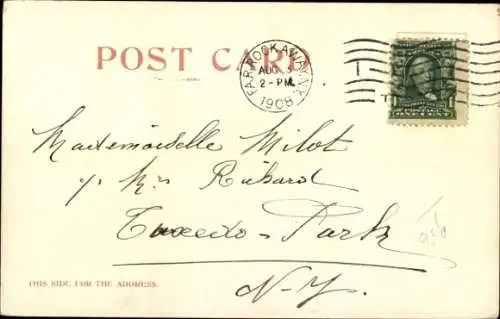 POST CARD
FAR ROCKAWAY, N.Y.
AUG
2-PM.
1908
ONE CENT
Mademoiselle Milot
c/o Mrs Richard
Tuxedo Park
N-Y-
THIS SIDE FOR THE ADDRESS.